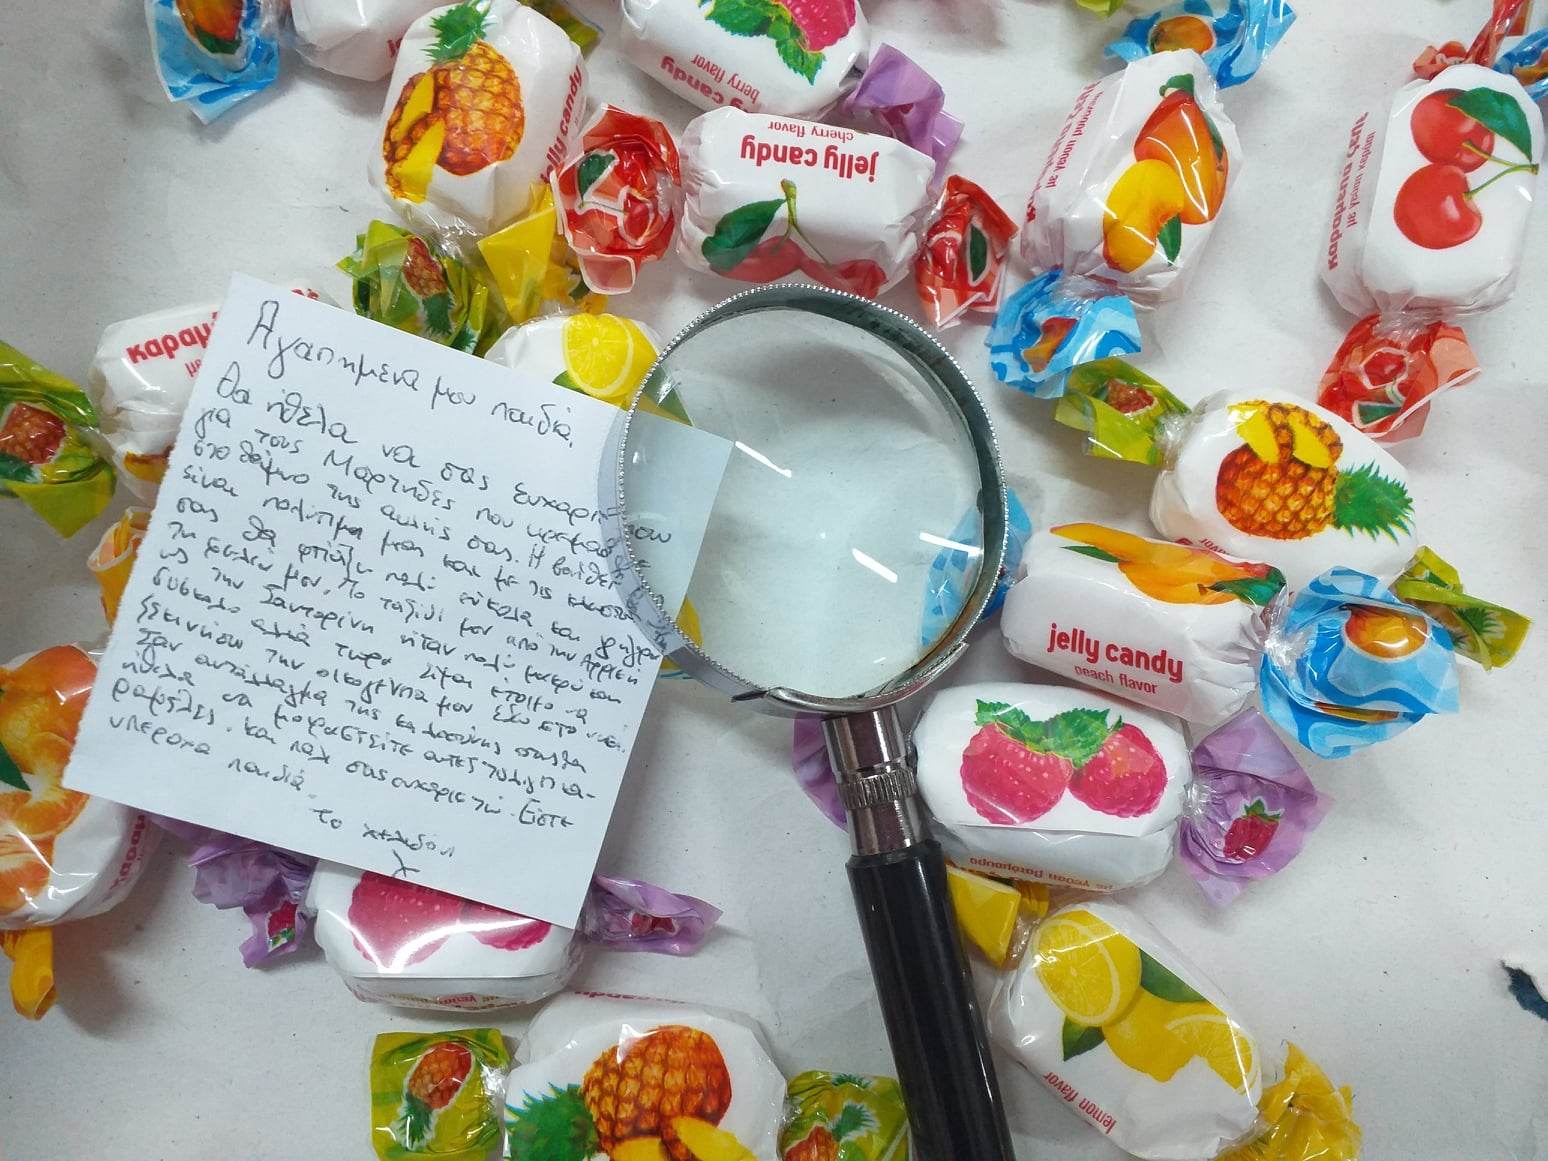 jelly candy
jelly candy
berry flavor
cherry flavor
jelly candy
καραμέλες
με γεύση
καραμέλες
με γεύση
Αγαπημένα μου παιδιά,
θα ήθελα να σας ευχαριστήσω
για τους Μάρτηδες που κρεμάσατε
στο δέντρο της αυλής σας. Η βοήθεια
είναι πολύτιμη μιας και με τις κλωστές
σας θα φτιάξω πολύ εύκολα και γρήγορα
τη φωλιά μου. Το ταξίδι μου από την Αφρική
ως την Σαντορίνη ήταν πολύ μακρύ και
δύσκολο αλλά τώρα είμαι έτοιμο να
ξεκινήσω την οικογένειά μου εδώ στο νησί.
Σαν αντάλλαγμα της καλοσύνης σας θα
ήθελα να μοιραστείτε αυτές τις λίγες κα-
ραμέλες. και πάλι σας ευχαριστώ. Είστε
υπέροχα παιδιά
το χελιδόνι
χ
jelly candy
peach flavor
με γεύση βατόμουρο
lemon flavor